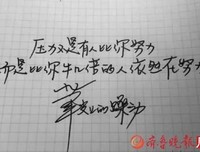 压力不是有人比你努力
而是比你牛几倍的人依然在努力
毕业的
齐鲁晚报